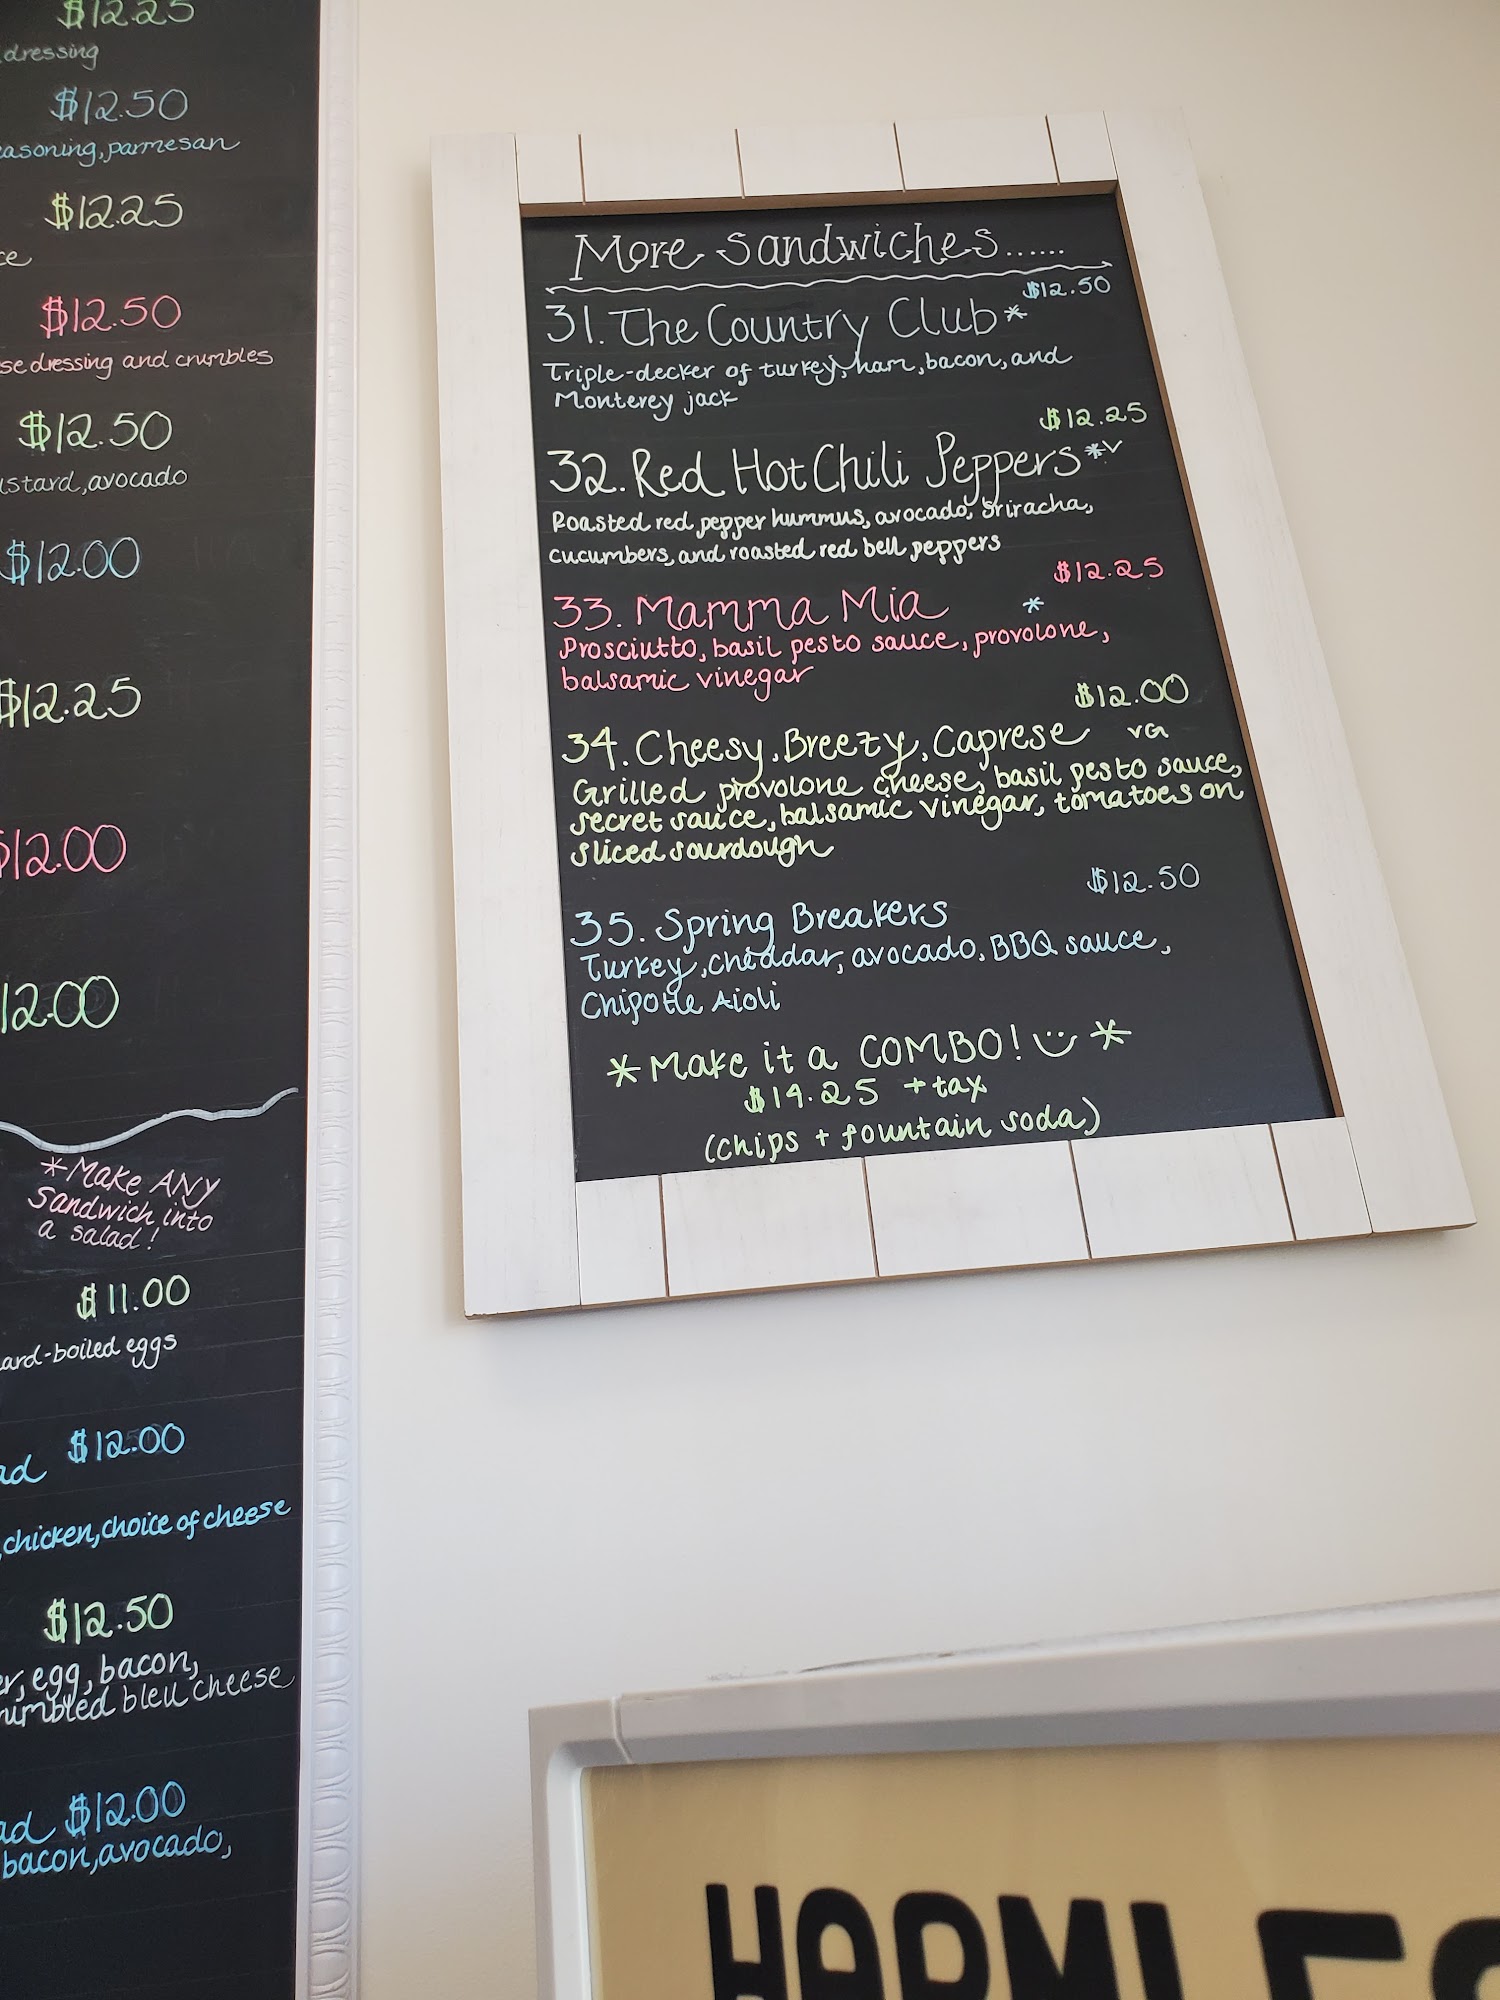 $12.25
dressing
$12.50
parmesan
$12.25
$12.50
dressing and crumbles
$12.50
avocado
$12.00
$12.25
$12.00
12.00
*Make ANY
Sandwich into
a salad!
$11.00
boiled eggs
$12.00
chicken, choice of cheese
$12.50
egg, bacon,
bleu cheese
$12.00
bacon, avocado,
More Sandwiches......
$12.50
31. The Country Club*
Triple-decker of turkey, ham, bacon, and
Monterey jack
$12.25
32. Red Hot Chili Peppers *v
Roasted red pepper hummus, avocado, Sriracha,
cucumbers, and roasted red bell peppers
$12.25
33. Mamma Mia *
Prosciutto, basil pesto sauce, provolone,
balsamic vinegar
$12.00
34. Cheesy, Breezy, Caprese VG
Grilled provolone cheese, basil pesto sauce,
secret sauce, balsamic vinegar, tomatoes on
sliced sourdough
$12.50
35. Spring Breakers
Turkey, cheddar, avocado, BBQ sauce,
Chipotle Aioli
*Make it a COMBO! *
$14.25 + tax
(chips + fountain soda)